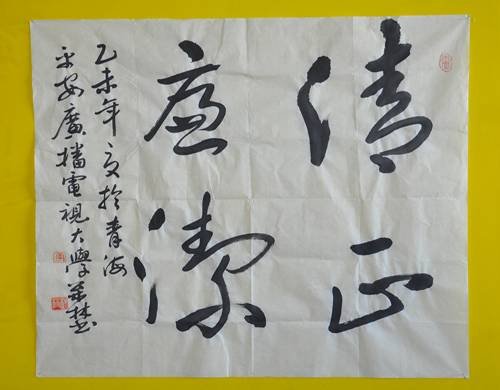 清正
廉潔
乙未年夏於青海
平安廣播電視大學林书